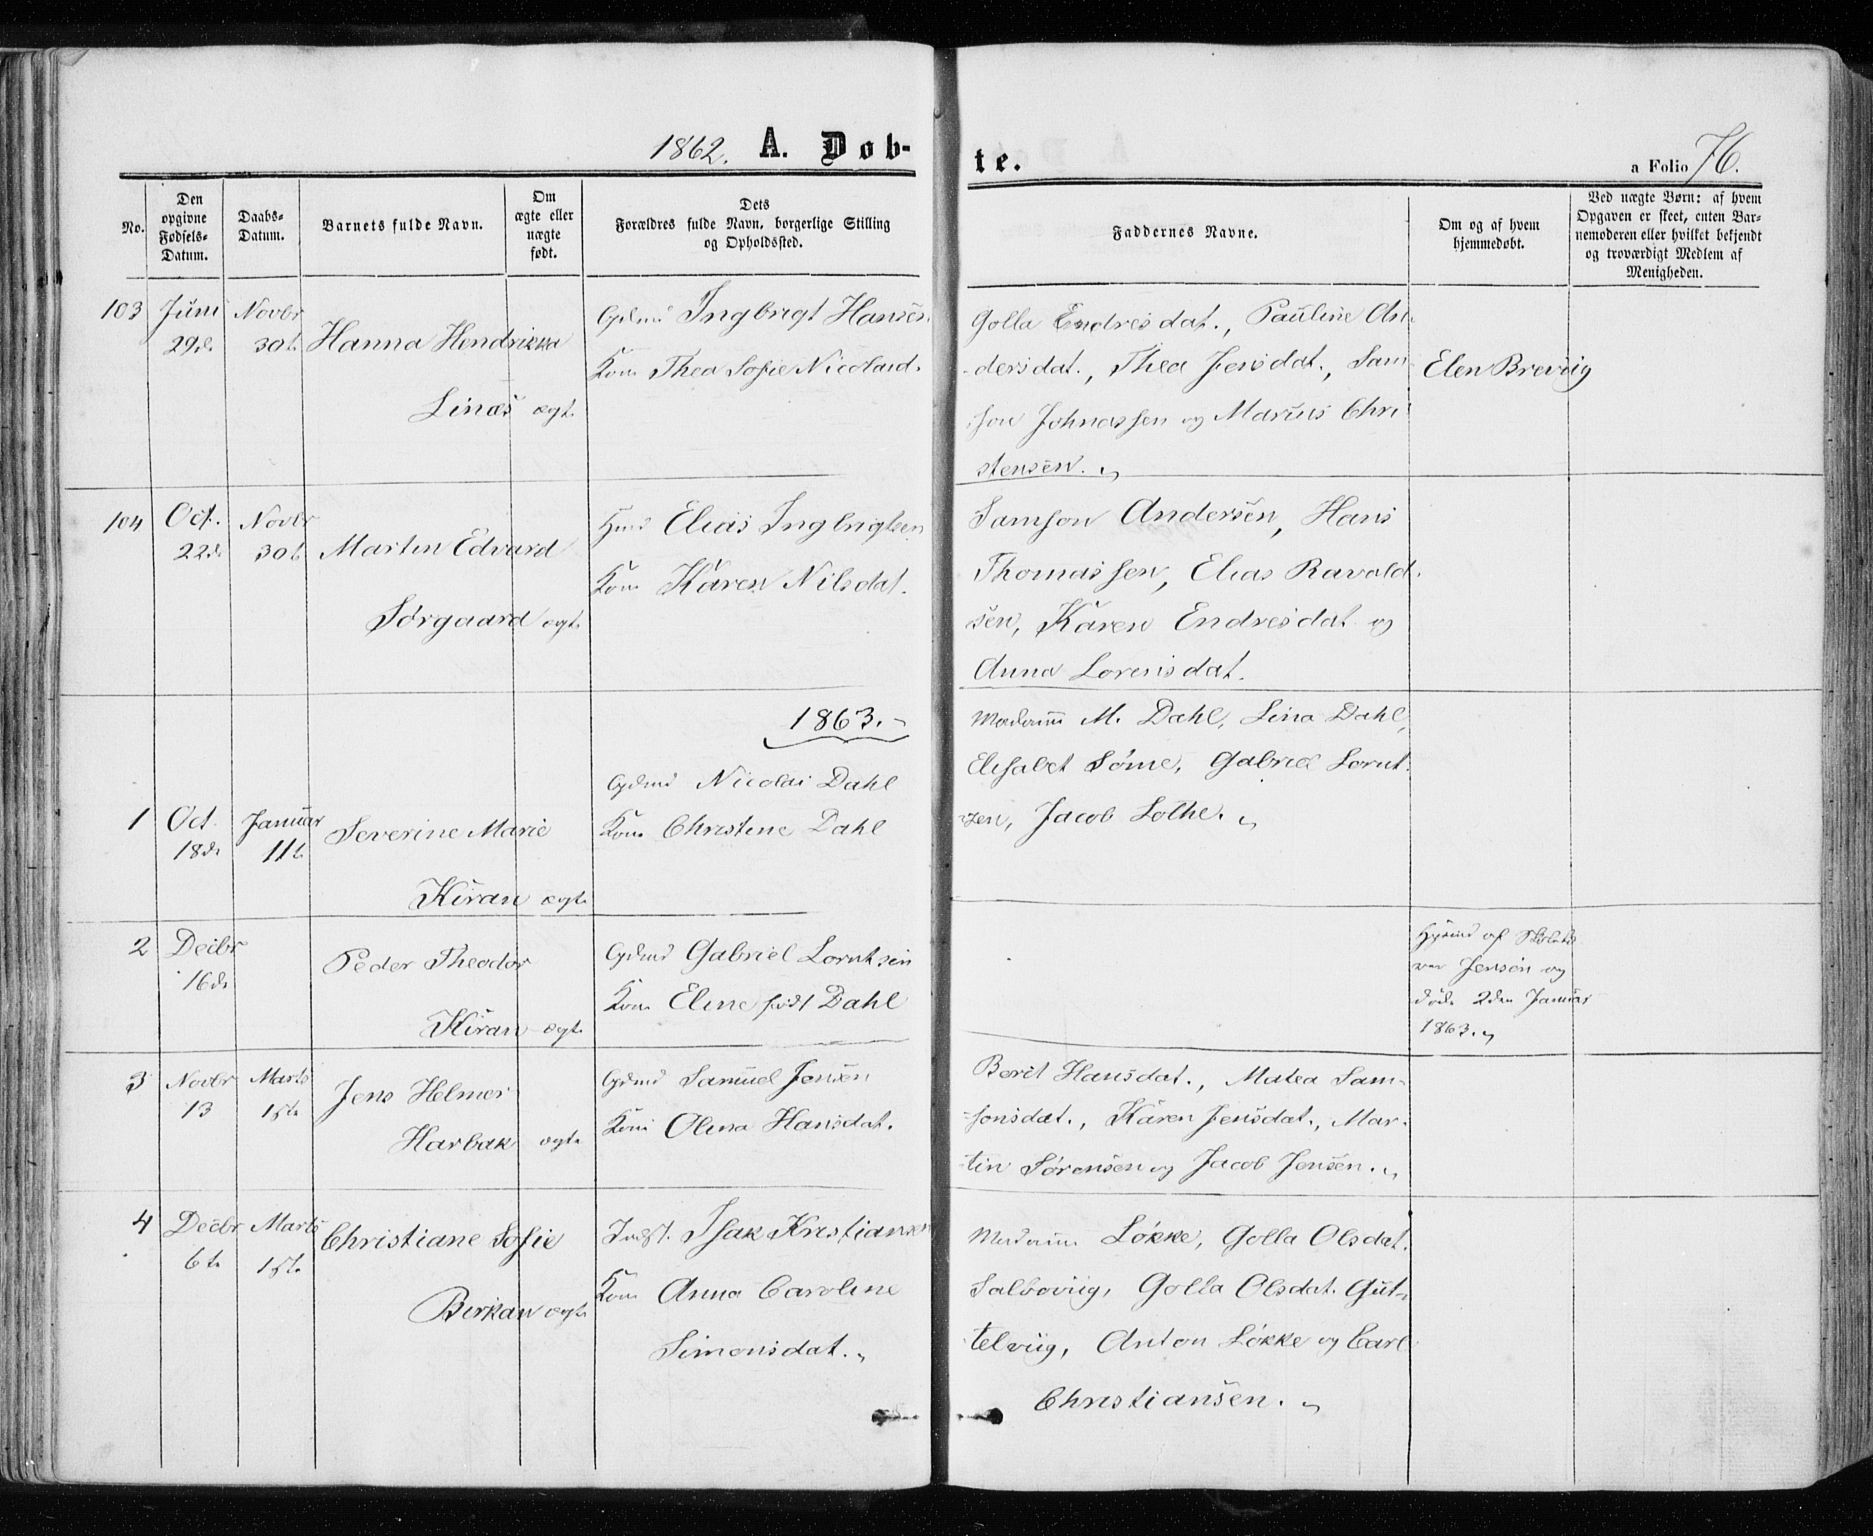 1862. A. Døb-
te.
a Folio 76.
No.
Den opgivne Fødsels-Datum.
Daabs-Datum.
Barnets fulde Navn.
Om ægte eller uægte født.
Dets Forældres fulde Navn, borgerlige Stilling og Opholdssted.
Faddernes Navne.
Om og af hvem hjemmedøbt.
Ved uægte Børn: af hvem Opgaven er skeet, enten Barnemoderen eller hvilket bekjendt og troværdigt Medlem af Menigheden.
103 Juni Novbr
29de 30te Hanna Hendrikka
Linæs ægt.
Gdmd Ingbrigt Hansen
Kone Thea Sofie Nicolaid.
Golla Endresdat., Pauline An-
dersdat., Thea Jensdat., Sam-
son Johnassen og Marius Chri-
stensen.
Elen Breviig
104 Oct. Novbr
22de 30te Martin Edvard
Sørgaard ægt.
Husmd Elias Ingbrigtsen
Kone Karen Nilsdat.
Samson Andersen, Hans
Thomassen, Elias Ravald-
sen, Karen Endresdat og
Anna Lorensdat.
1863.
1 Oct. Januar
18de 11te Severine Marie
Kiran ægt.
Gdmd Nicolai Dahl
Kone Christine Dahl
Madam M. Dahl, Lina Dahl,
Elisabet Søme, Gabriel Lornt-
zen, Jacob Lothe.
2 Decbr
16de
Peder Theodor
Kiran ægt.
Gdmd Gabriel Lorntsen
Kone Eline født Dahl
af
Jensen og
døde 2den Januar
1863.
3 Novbr Marts
13 15te Jens Helmer
Harbak ægt.
Gdmd Samuel Jensen
Kone Olina Hansdat.
Berit Hansdat., Matea Sam-
sonsdat., Karen Jensdat., Mar-
tin Sørensen og Jacob Jensen.
4 Decbr Marts
6te 15te Christiane Sofie
Birkan ægt.
Indst. Isak Kristiansen
Kone Anna Caroline
Simonsdat.
Madam Løkke, Golla Olsdat.
Salboviig, Golla Olsdat. Gut-
telviig, Anton Løkke og Carl
Christiansen.